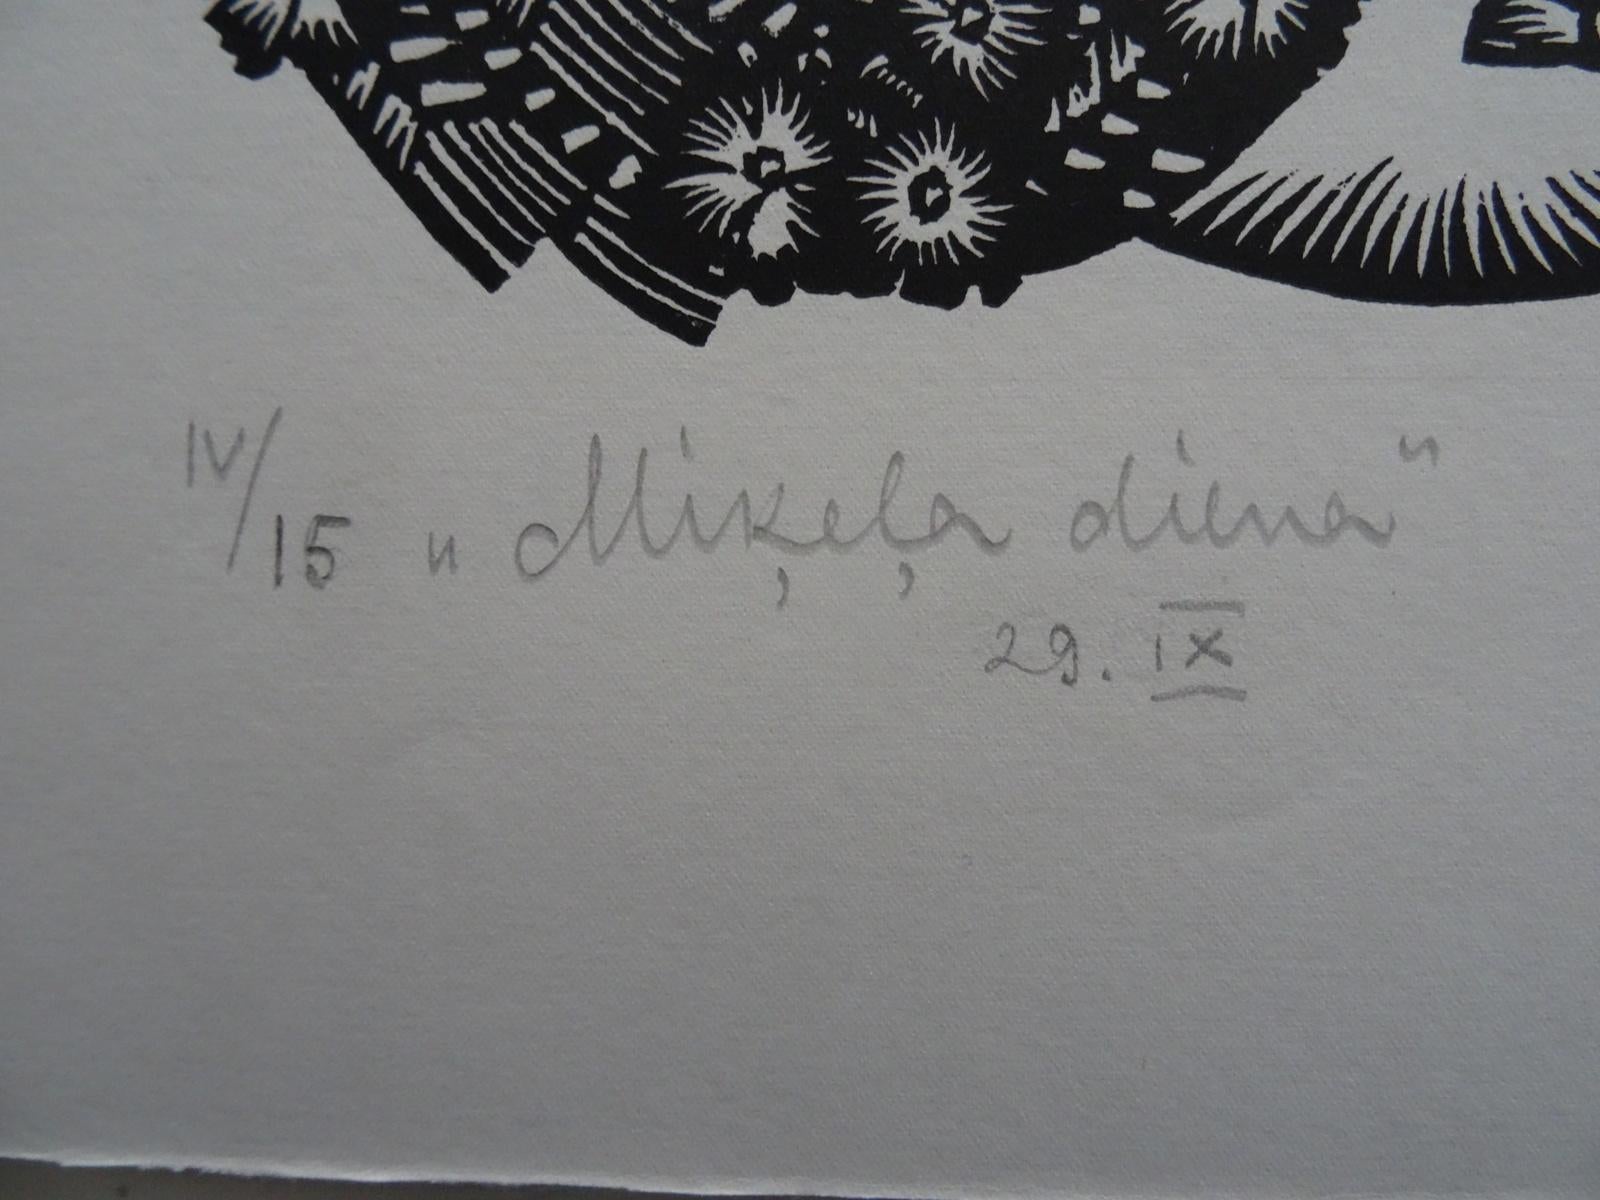 IV/15 "Miķeļa diena"
29. IX